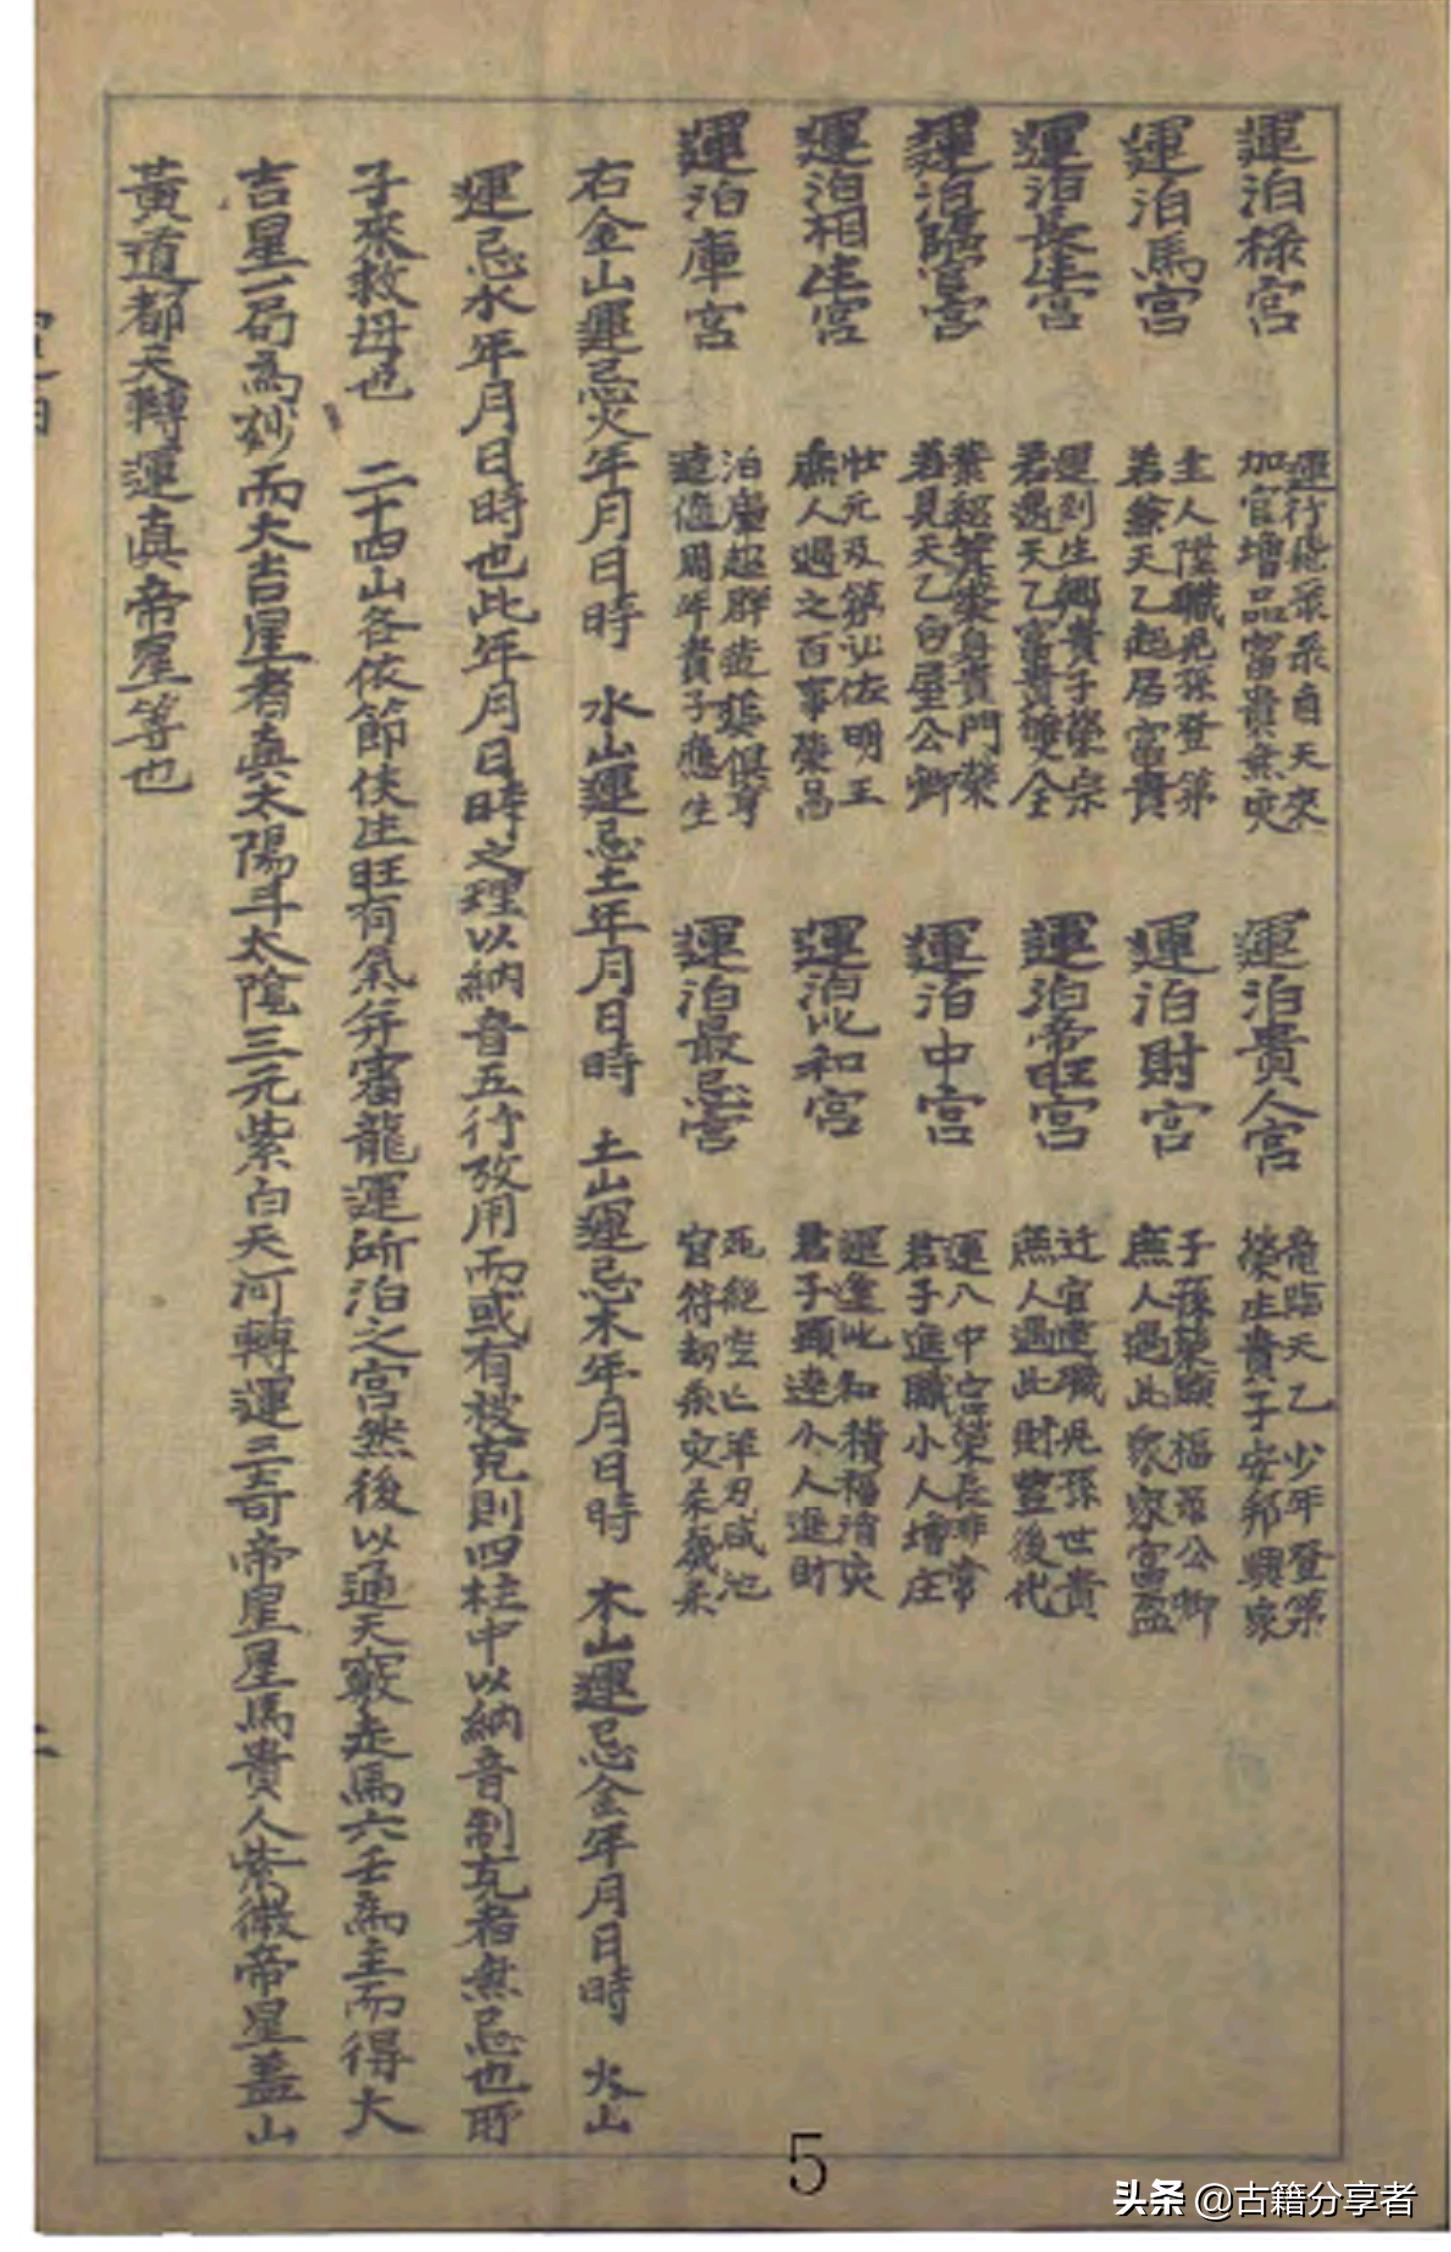 運泊祿宮
運行祿祿自天來
加官增品富貴無災
運泊貴人宮
竜臨天乙少年登第
榮生貴子安邦興家
運泊馬宮
主人陞職兒孫登第
若兼天乙起居富貴
運泊財宮
子孫榮顕福公卿
庶人遇此家富盈
運泊長生宮
運到生鄉貴子榮宗
若遇天乙富貴雙全
運泊帝旺宮
迁官進職児孫世貴
庶人遇此財豐後代
運泊臨官宮
貴門榮
若見天乙白屋公卿
運泊中宮
運入中宮榮非常
君子進職小人增庄
運泊相生宮
壮元及第以佐明王
庶人遇之百事榮昌
運泊比和宮
運逢比和積福消灾
君子顕達小人進財
運泊庫宮
泊庫超群造葬俱亨
遠值周年貴子應生
運泊最忌宮
死絕空亡羊刃咸池
官符劫杀灾杀歲杀
右金山運忌火年月日時　水山運忌土年月日時　土山運忌木年月日時　木山運忌金年月日時　火山
運忌水年月日時也此年月日時之理以納音五行攷用而或有被克則四柱中以納音制克者無忌也所
子來救母也　二十四山各依節侯生旺有氣并審龍運所泊之宮然後以通天竅走馬六壬為主而得大
吉星一局為妙而大吉星者真太陽斗太陰三元紫白天河轉運三奇帝星星馬貴人紫微帝星蓋山
黃道都天轉運真帝星等也
5
头条 @古籍分享者